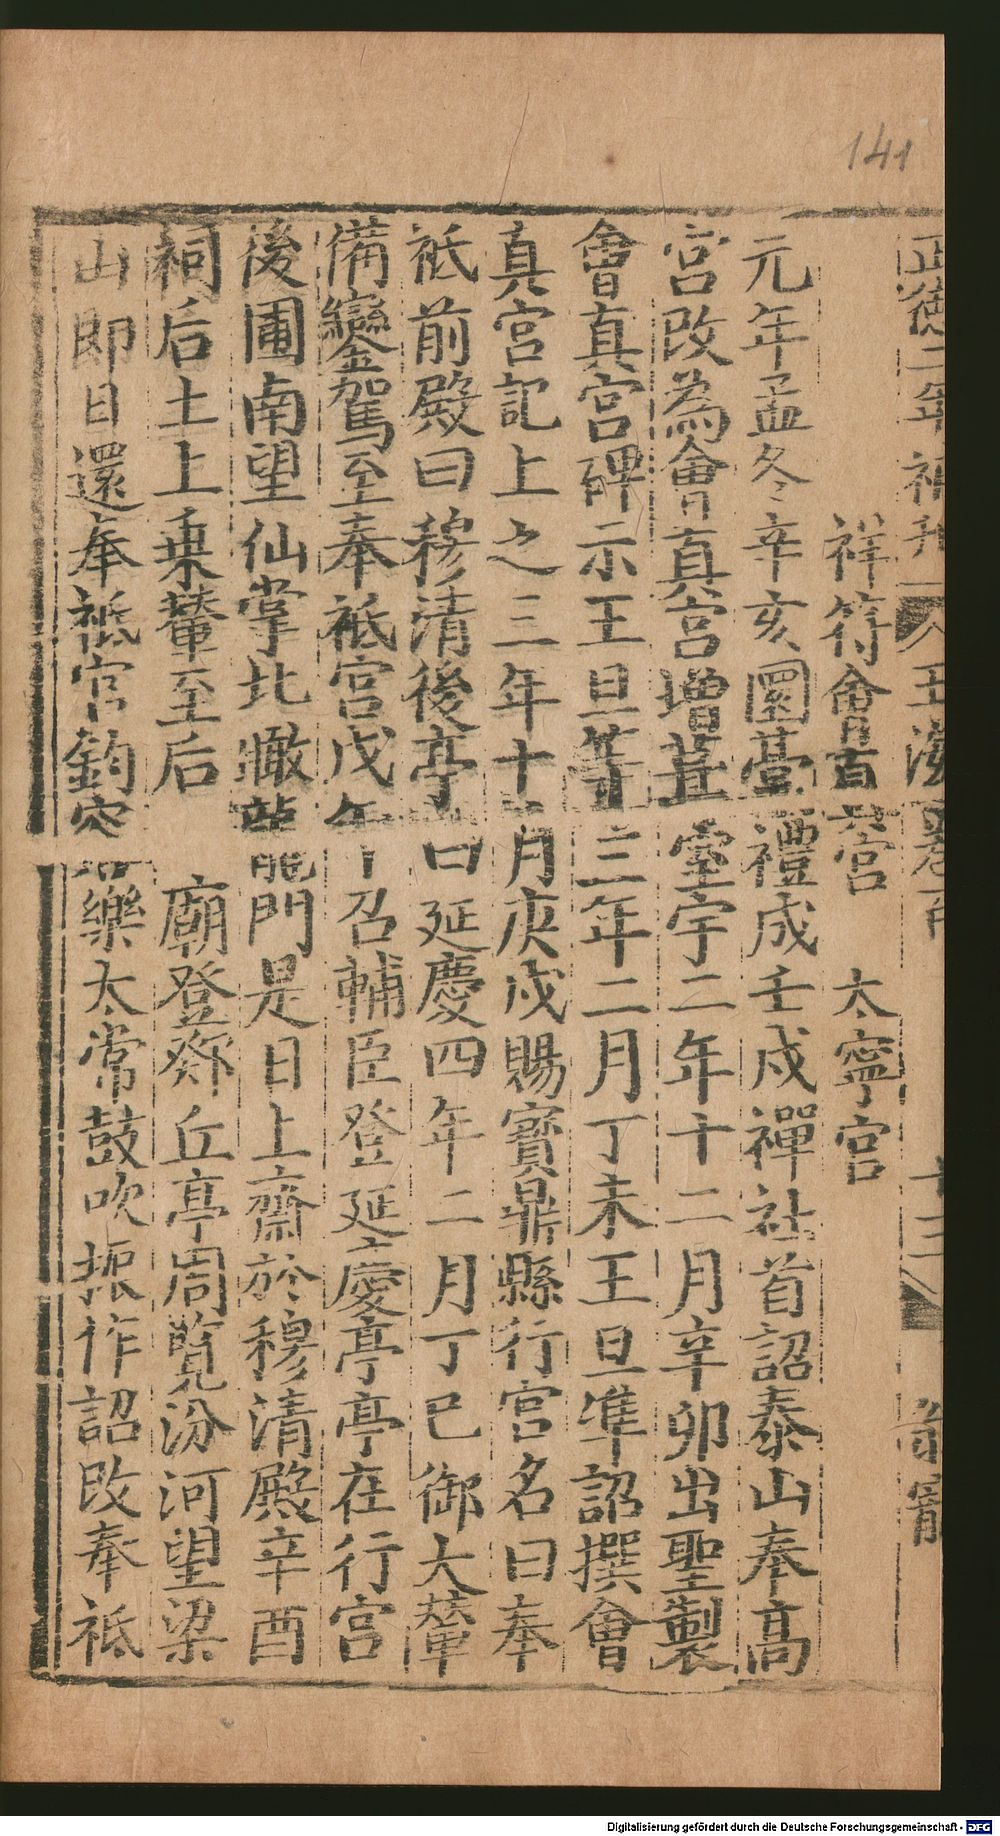 141
正德二年補刋 玉海卷百 十三
祥符會真宮 太寧宮
元年孟冬辛亥圜臺禮成壬戌禪社首詔泰山奉高
宮改為會真宮增葺室宇二年十二月辛卯出聖製
會真宮碑示王旦等三年二月丁未王旦準詔撰會
真宮記上之三年十一月庚戌賜寶鼎縣行宮名曰奉
祗前殿曰穆清後亭曰延慶四年二月丁巳御大輦
備鑾駕至奉祗宮戊午召輔臣登延慶亭亭在行宮
後圃南望仙掌北瞰龍門是日上齋於穆清殿辛酉
祠后土上乗輦至后廟登郊丘亭周覧汾河望梁
山即日還奉祗宮鈞容樂太常鼓吹振作詔改奉祗
Digitalisierung gefördert durch die Deutsche Forschungsgemeinschaft - DFG